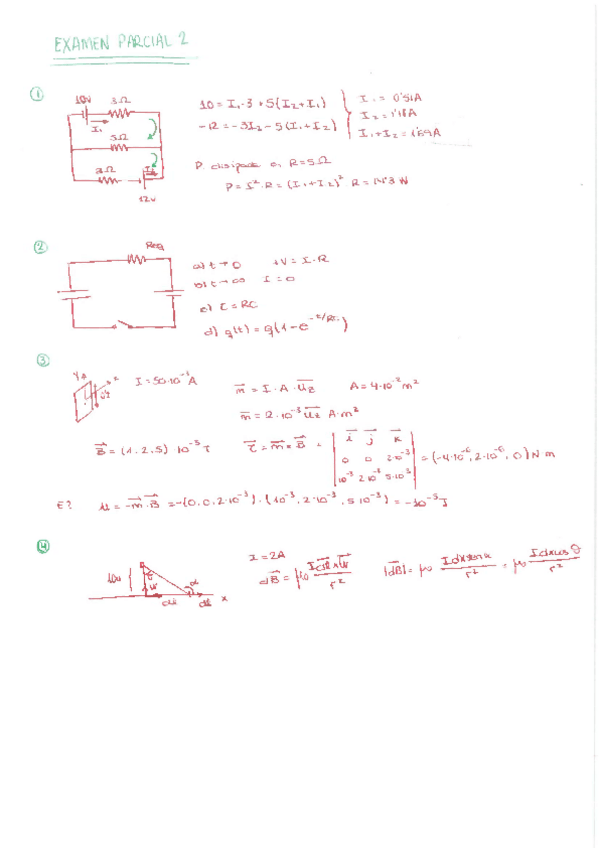 EXAMEN PARCIAL 2
1
10V 3Ω
I₁
5Ω
3Ω I₂
12V
10 = I₁·3 + 5(I₂+I₁)
-12 = -3I₂ - 5(I₁+I₂)
I₁ = 0'51A
I₂ = 1'18A
I₁+I₂ = 1'69A
P. disipada en R=5Ω
P = I²·R = (I₁+I₂)² R = 14'3 W
2
Req
a) t→0 +V = I·R
b) t→∞ I = 0
c) τ = RC
d) q(t) = q(1-e^{-t/RC})
3
I = 50·10⁻³A
m⃗ = I·A·u⃗z A = 4·10⁻² m²
m⃗ = 2·10⁻³ u⃗z A·m²
B⃗ = (1,2,5) 10⁻³ T
i⃗ j⃗ k⃗
0 0 2·10⁻³
10⁻³ 2·10⁻³ 5·10⁻³
= (-4·10⁻⁶, 2·10⁻⁶, 0) N m
E? U = -m⃗·B⃗ = -(0,0,2·10⁻³)·(10⁻³, 2·10⁻³, 5·10⁻³) = -10⁻⁵ J
4
x
I = 2A